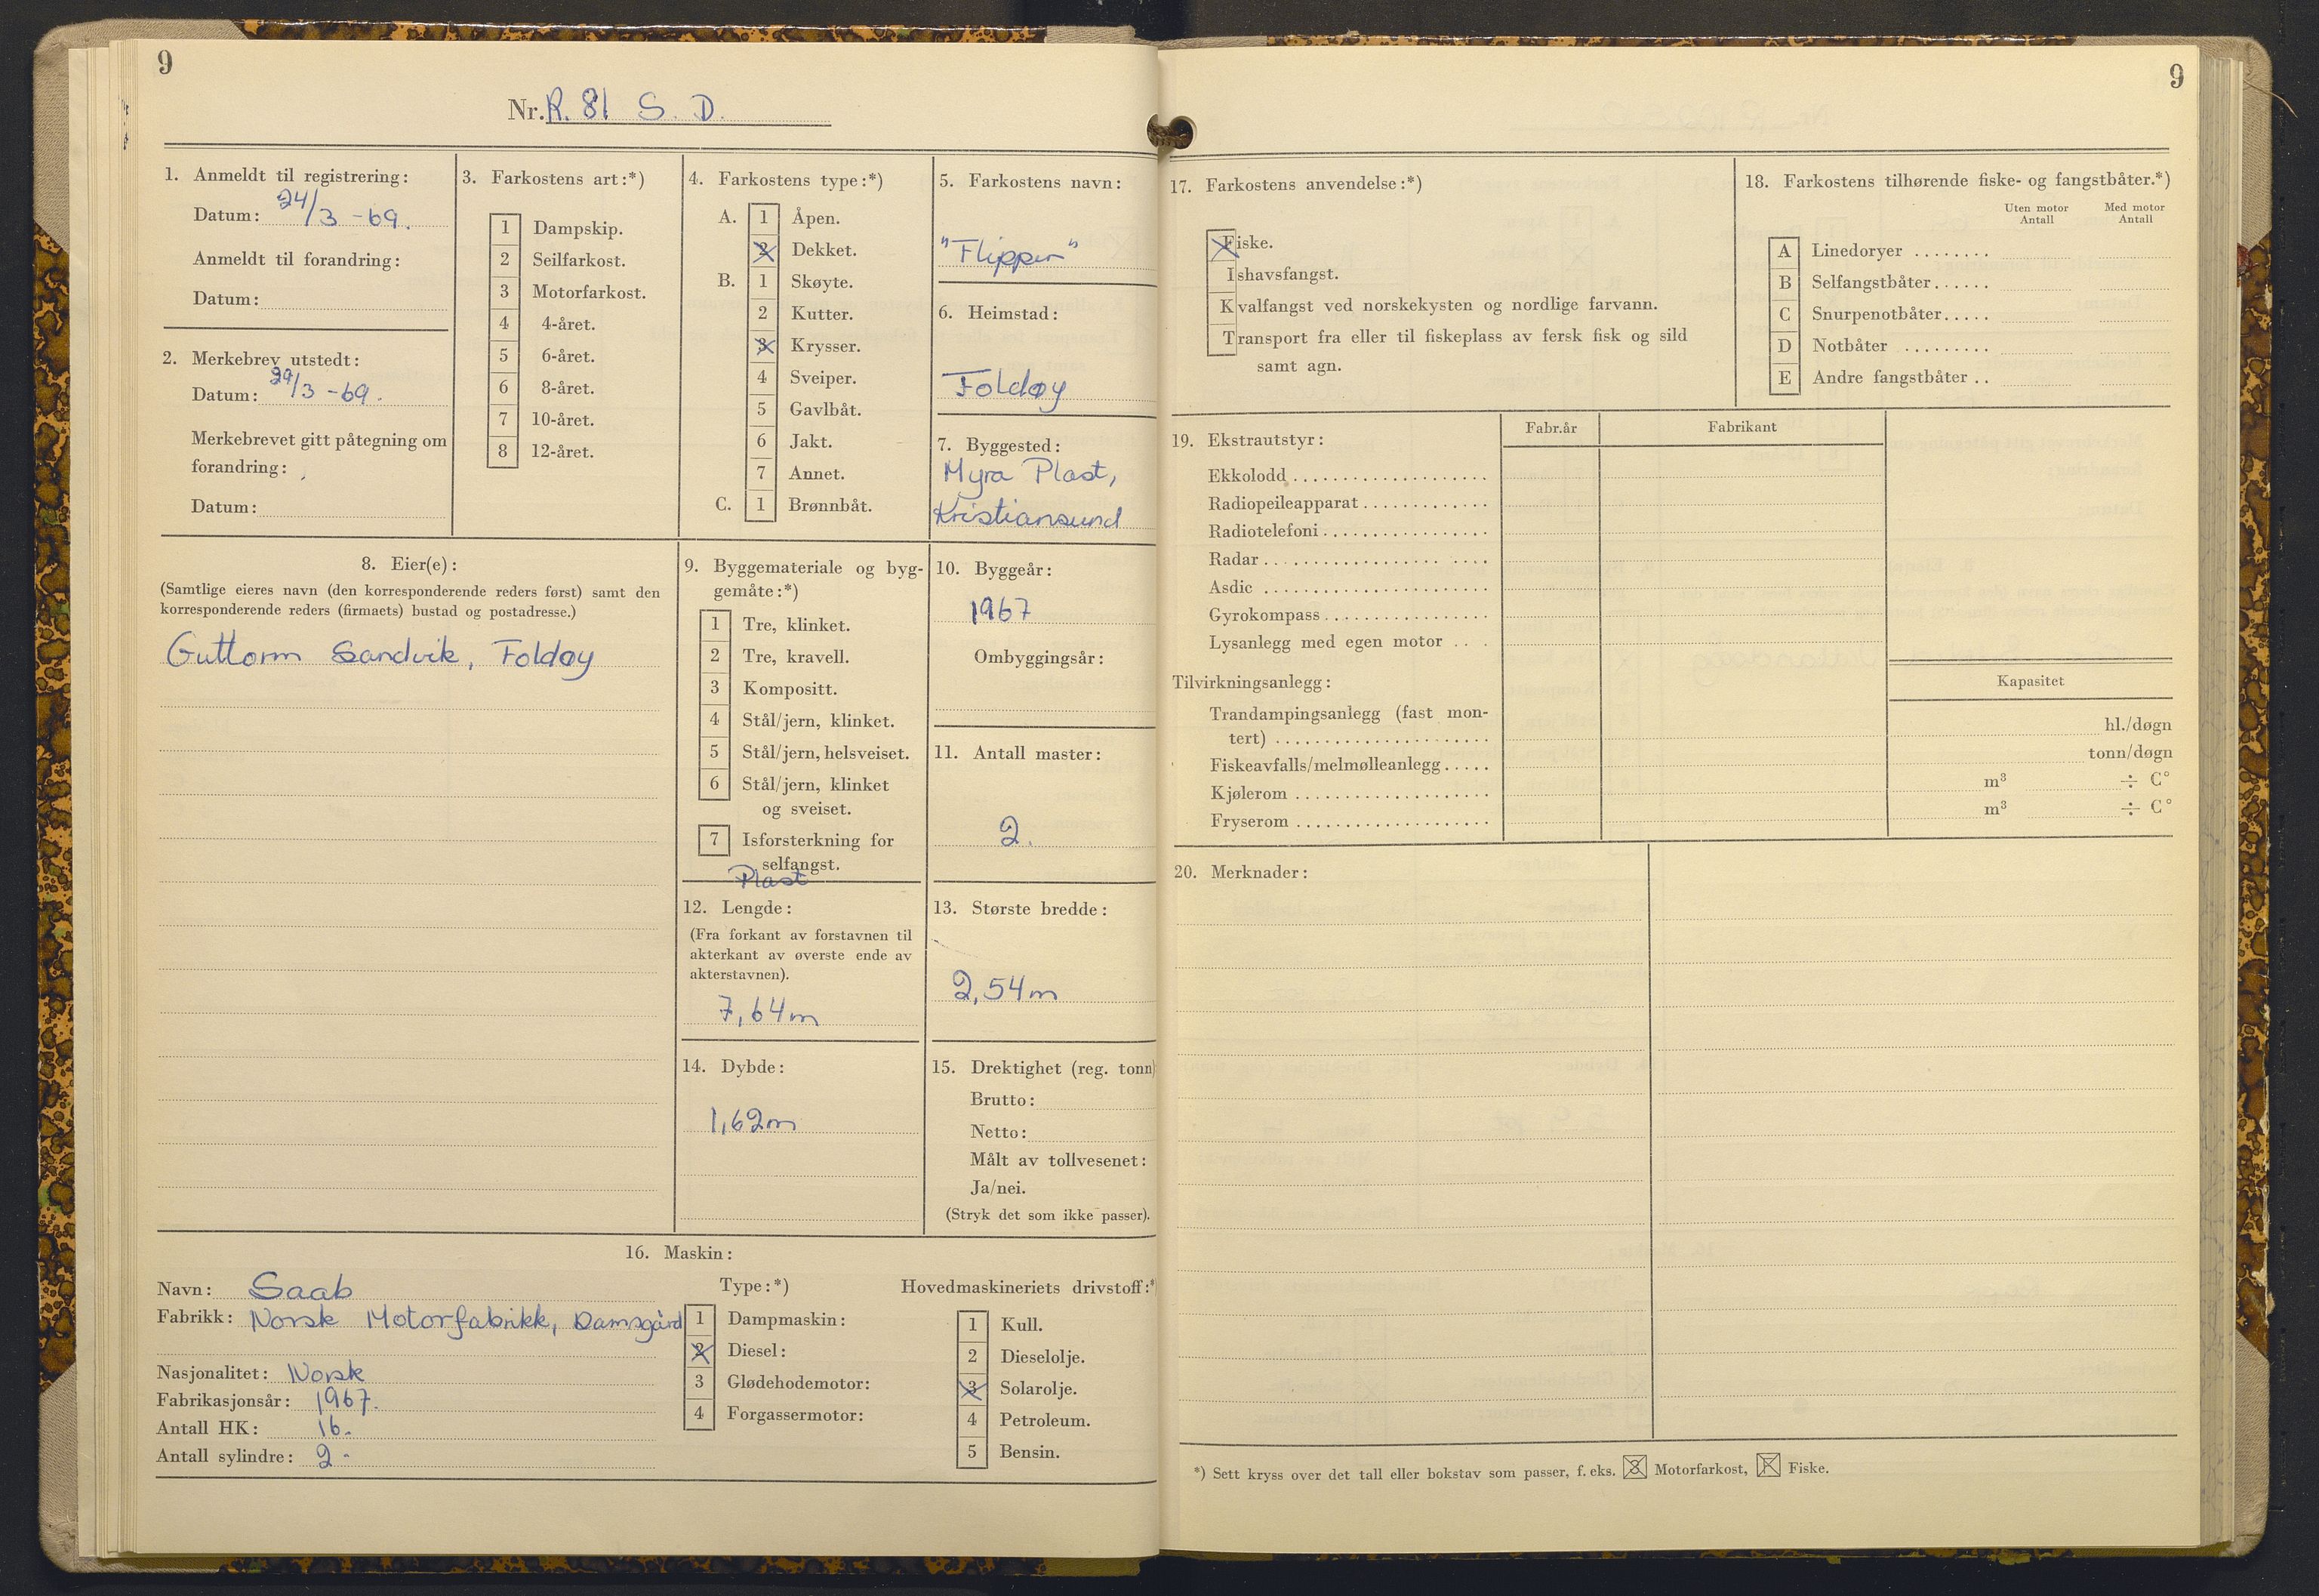 9
Nr. R. 81 S. D.
1. Anmeldt til registrering:
Datum: 24/3 -69.
Anmeldt til forandring:
Datum:
2. Merkebrev utstedt:
Datum: 29/3 -69.
Merkebrevet gitt påtegning om
forandring:
Datum:
3. Farkostens art:*)
1 Dampskip.
2 Seilfarkost.
3 Motorfarkost.
4 4-året.
5 6-året.
6 8-året.
7 10-året.
8 12-året.
4. Farkostens type:*)
A. 1 Åpen.
2 Dekket.
B. 1 Skøyte.
2 Kutter.
3 Krysser.
4 Sveiper.
5 Gavlbåt.
6 Jakt.
7 Annet.
C. 1 Brønnbåt.
5. Farkostens navn:
"Flipper"
6. Heimstad:
Foldøy
7. Byggested:
Myra Plast,
Kristiansund
8. Eier(e):
(Samtlige eieres navn (den korresponderende reders først) samt den
korresponderende reders (firmaets) bustad og postadresse.)
Guttorm Sandvik, Foldøy
9. Byggemateriale og byg-
gemåte:*)
1 Tre, klinket.
2 Tre, kravell.
3 Kompositt.
4 Stål/jern, klinket.
5 Stål/jern, helsveiset.
6 Stål/jern, klinket
og sveiset.
7 Isforsterkning for
selfangst.
Plast
10. Byggeår:
1967
Ombyggingsår:
11. Antall master:
2.
12. Lengde:
(Fra forkant av forstavnen til
akterkant av øverste ende av
akterstavnen).
7,64m
13. Største bredde:
2,54m
14. Dybde:
1,62m
15. Drektighet (reg. tonn)
Brutto:
Netto:
Målt av tollvesenet:
Ja/nei.
(Stryk det som ikke passer).
16. Maskin:
Navn: Saab
Fabrikk: Norsk Motorfabrikk, Damsgård
Nasjonalitet: Norsk
Fabrikasjonsår: 1967.
Antall HK: 16.
Antall sylindre: 2-
Type:*)
1 Dampmaskin:
2 Diesel:
3 Glødehodemotor:
4 Forgassermotor:
Hovedmaskineriets drivstoff:*
1 Kull.
2 Dieselolje.
3 Solarolje.
4 Petroleum.
5 Bensin.
9
17. Farkostens anvendelse:*)
Fiske.
Ishavsfangst.
Kvalfangst ved norskekysten og nordlige farvann.
Transport fra eller til fiskeplass av fersk fisk og sild
samt agn.
18. Farkostens tilhørende fiske- og fangstbåter.*)
Uten motor Med motor
Antall Antall
A Linedoryer ........
B Selfangstbåter......
C Snurpenotbåter.....
D Notbåter .........
E Andre fangstbåter ..
19. Ekstrautstyr:
Fabr.år Fabrikant
Ekkolodd ....................
Radiopeileapparat .............
Radiotelefoni .................
Radar .......................
Asdic .......................
Gyrokompass .................
Lysanlegg med egen motor ...
Tilvirkningsanlegg:
Kapasitet
Trandampingsanlegg (fast mon-
tert) ...................... hl./døgn
Fiskeavfalls/melmølleanlegg ..... tonn/døgn
Kjølerom .................... m³ ÷ C°
Fryserom .................... m³ ÷ C°
20. Merknader:
*) Sett kryss over det tall eller bokstav som passer, f. eks. 3 Motorfarkost, F Fiske.